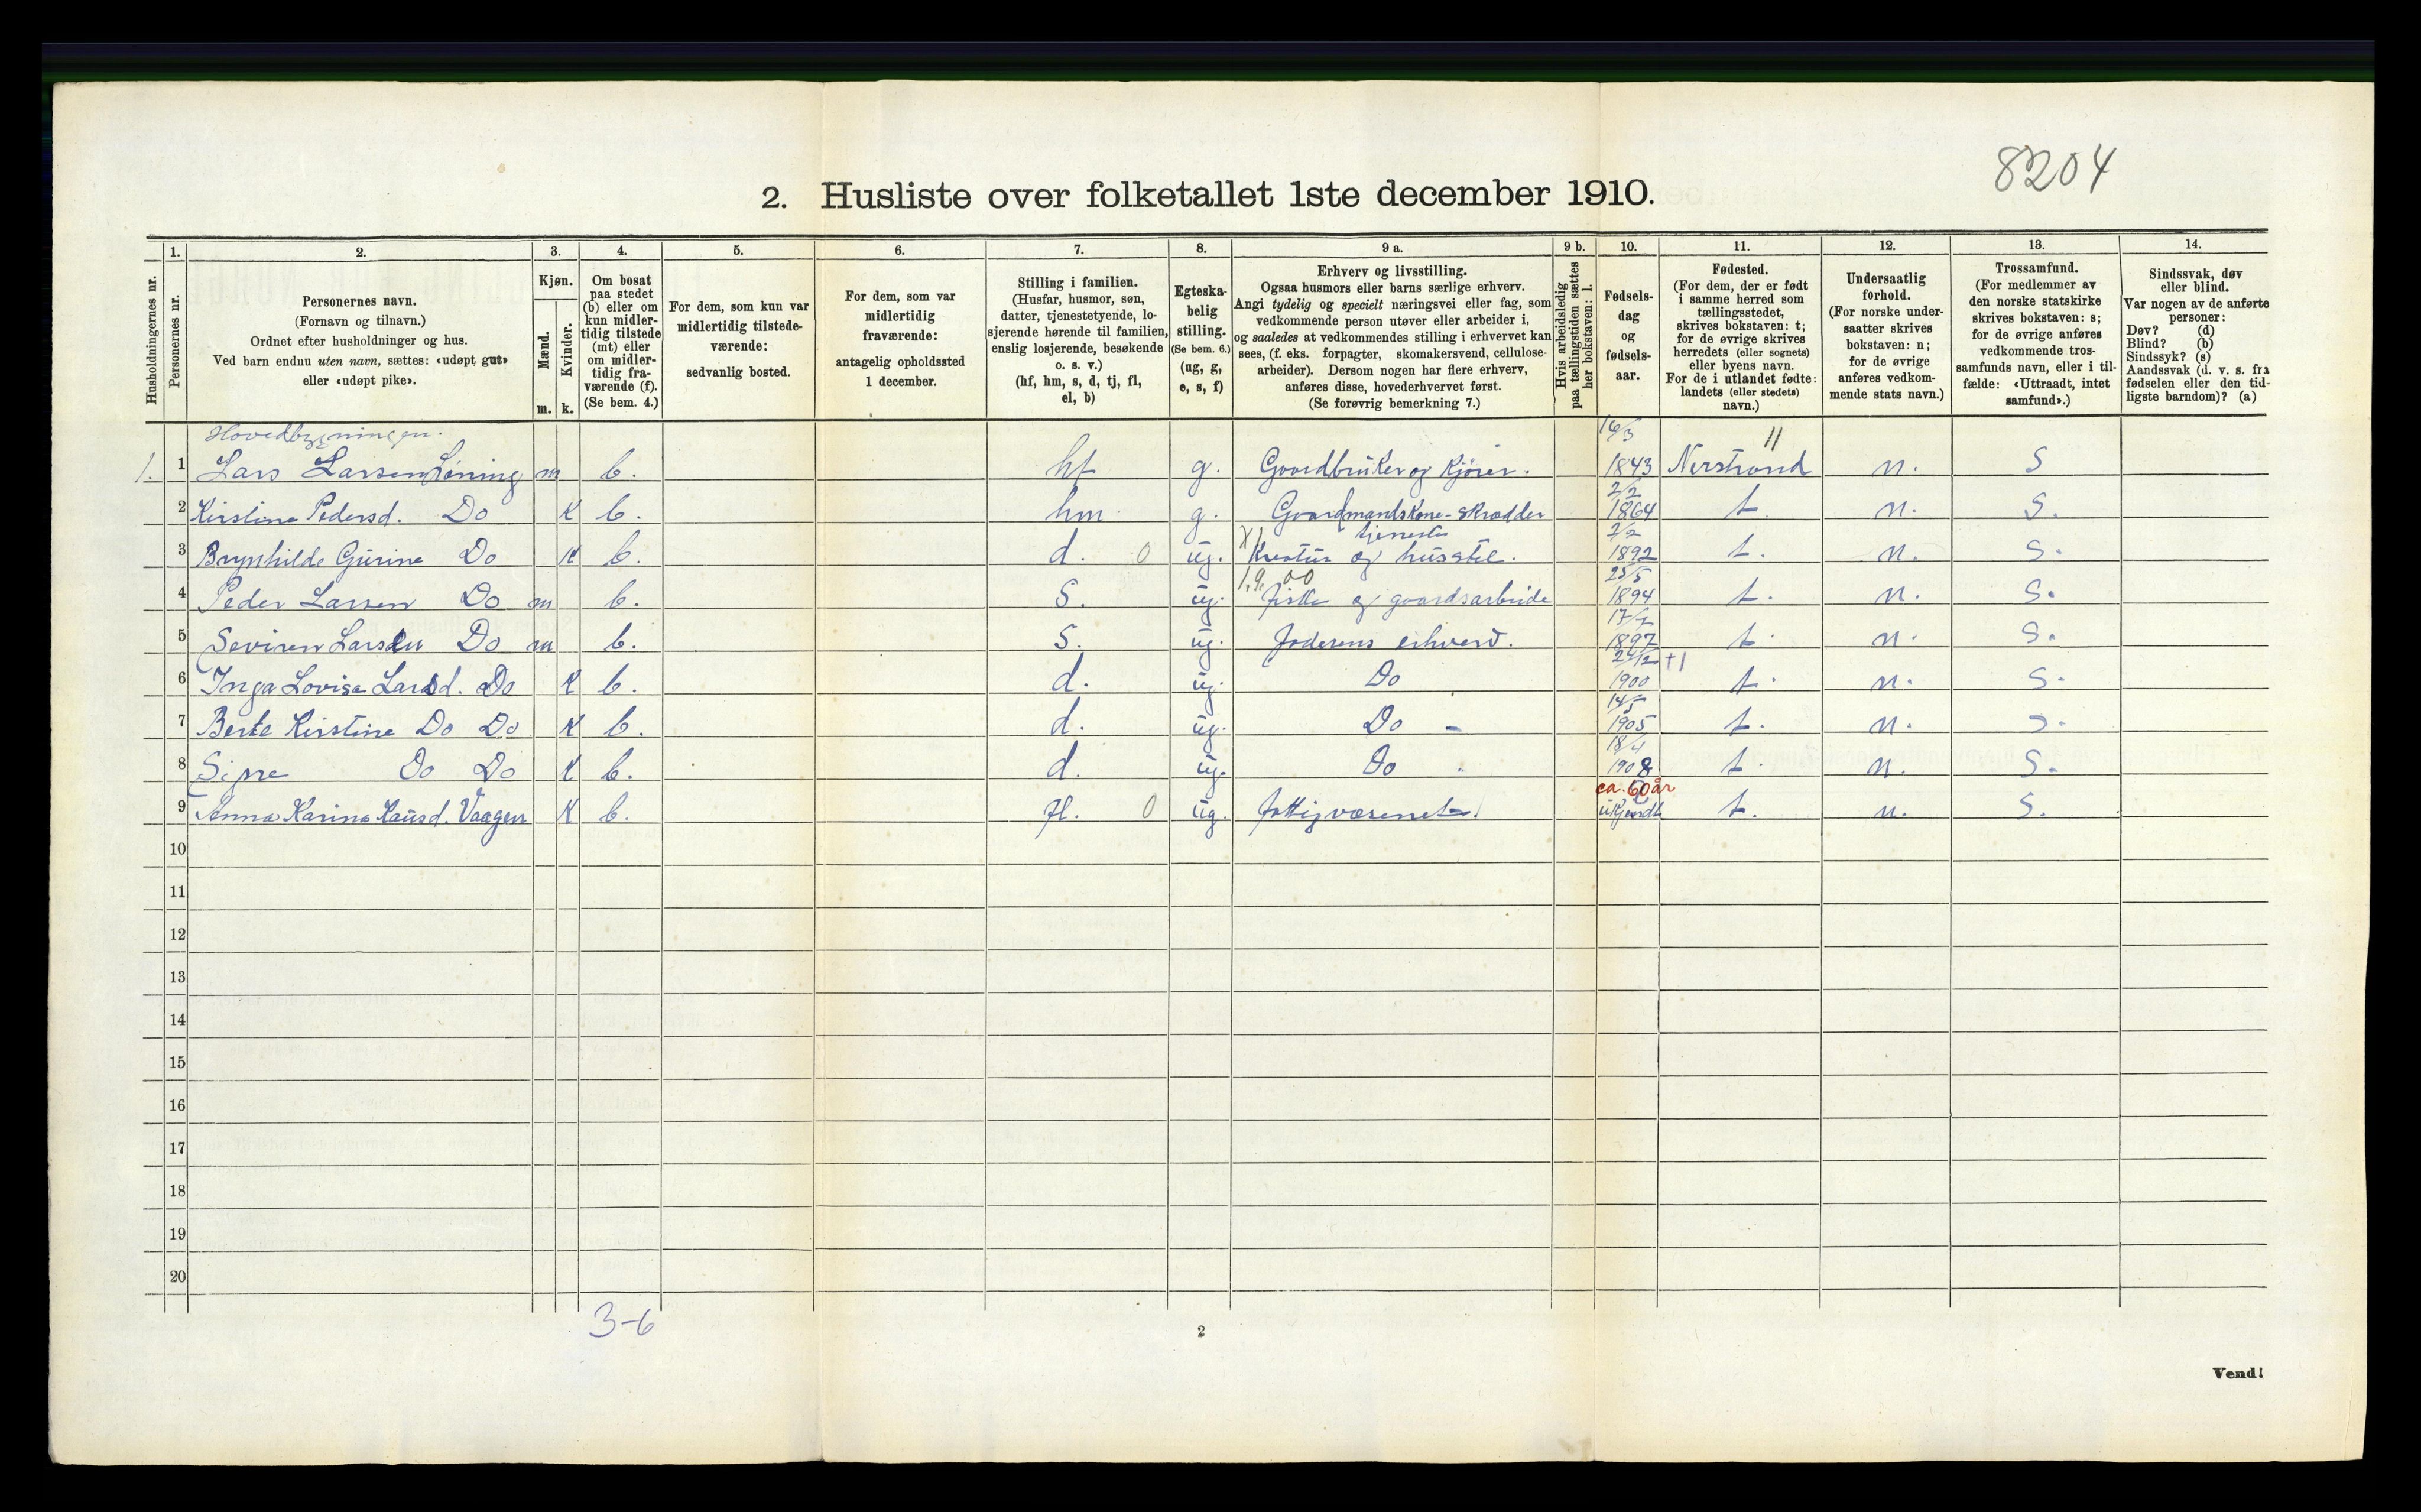 8204
2. Husliste over folketallet 1ste december 1910.
Husholdningernes nr.
1. Personernes nr.
2. Personernes navn. (Fornavn og tilnavn.) Ordnet efter husholdninger og hus. Ved barn endnu uten navn, sættes: «udøpt gut» eller «udøpt pike».
3. Kjøn. Mænd. m. Kvinder. k.
4. Om bosat paa stedet (b) eller om kun midlertidig tilstede (mt) eller om midlertidig fraværende (f). (Se bem. 4.)
5. For dem, som kun var midlertidig tilstedeværende: sedvanlig bosted.
6. For dem, som var midlertidig fraværende: antagelig opholdssted 1 december.
7. Stilling i familien. (Husfar, husmor, søn, datter, tjenestetyende, losjerende hørende til familien, enslig losjerende, besøkende o. s. v.) (hf, hm, s, d, tj, fl, el, b)
8. Egteskabelig stilling. (Se bem. 6.) (ug, g, e, s, f)
9 a. Erhverv og livsstilling. Ogsaa husmors eller barns særlige erhverv. Angi tydelig og specielt næringsvei eller fag, som vedkommende person utøver eller arbeider i, og saaledes at vedkommendes stilling i erhvervet kan sees, (f. eks. forpagter, skomakersvend, cellulosearbeider). Dersom nogen har flere erhverv, anføres disse, hovederhvervet først. (Se forøvrig bemerkning 7.)
9 b. Hvis arbeidsledig paa tællingstiden sættes her bokstaven: l.
10. Fødselsdag og fødselsaar.
11. Fødested. (For dem, der er født i samme herred som tællingsstedet, skrives bokstaven: t; for de øvrige skrives herredets (eller sognets) eller byens navn. For de i utlandet fødte: landets (eller stedets) navn.)
12. Undersaatlig forhold. (For norske undersaatter skrives bokstaven: n; for de øvrige anføres vedkommende stats navn.)
13. Trossamfund. (For medlemmer av den norske statskirke skrives bokstaven: s; for de øvrige anføres vedkommende trossamfunds navn, eller i tilfælde: «Uttraadt, intet samfund».)
14. Sindssvak, døv eller blind. Var nogen av de anførte personer: Døv? (d) Blind? (b) Sindssyk? (s) Aandssvak (d. v. s. fra fødselen eller den tidligste barndom)? (a)
Hovedbygningen.
1. 1 Lars Larsen Löning m b. hf g. Gaardbruker og Kjörer. 16/3 1843 Nerstrand 11 n. S
2 Kirstine Pedersd. Do K b. hm g. Gaardmandskone - Skrædder 2/2 1864 t. n. S.
3 Brynhilde Gurine Do K b. d. 0 ug. Kreatur og husstel. tjeneste 2/2 1892 t. n. S.
4 Peder Larsen Do m b. S. ug. fiske og gaardsarbeide 25/5 1894 t. n. S.
5 Seviren Larsen Do m b. S. ug. faderens erhverv. 1897 t. n. S.
6 Inga Lovise Larsd. Do K b. d. ug. Do 1900 t. n. S.
7 Berte Kirstine Do Do K b. d. ug. Do - 14/5 1905 t. n. S.
8 Signe Do Do K b. d. ug. Do 18/4 1908 t. n. S.
9 Anna Karina Knusd. Vaagen K b. fl. 0 ug. fattigvæsenet. ca. 60 år ukjendt t. n. S.
10
11
12
13
14
15
16
17
18
19
20
3-6
2
Vend!